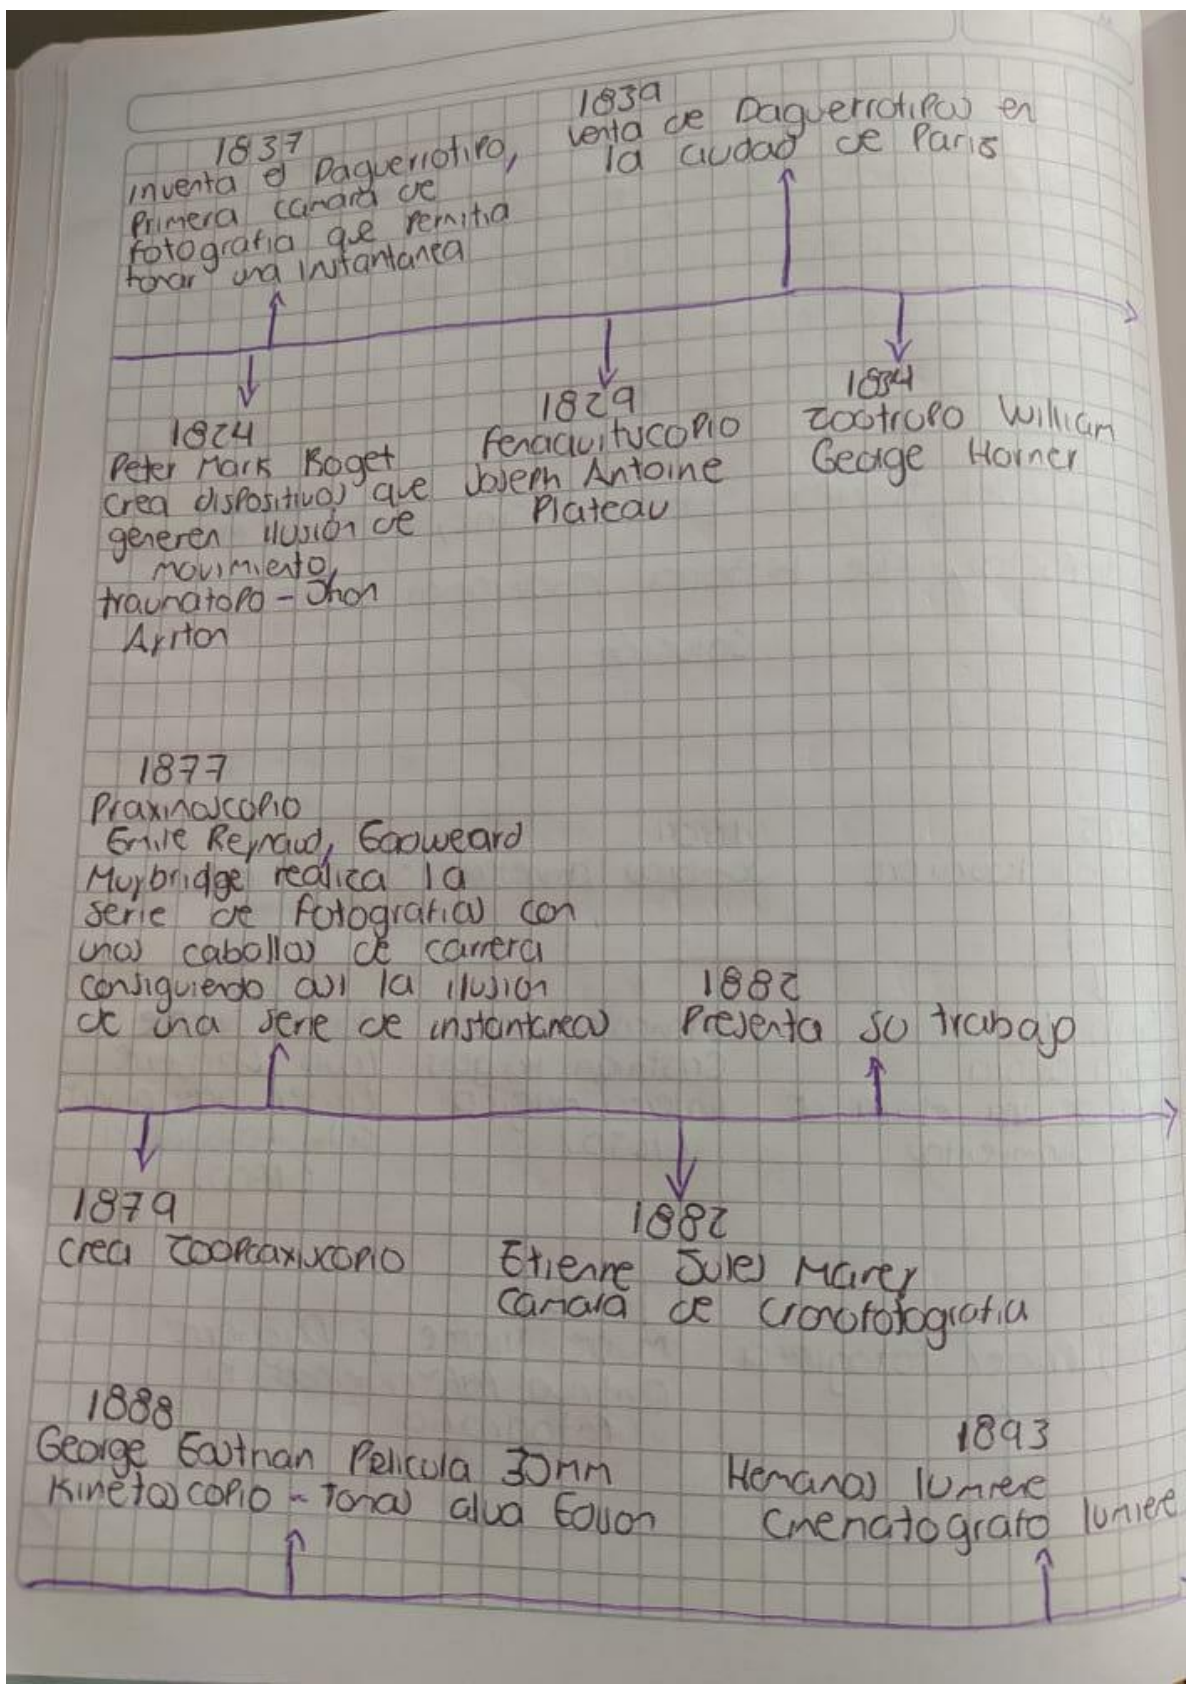 1837
inventa el Daguerrotipo,
Primera camara de
fotografia que Permitia
tomar una instantanea
1839
venta de Daguerrotipos en
la ciudad de Paris
1824
Peter Mark Roget
crea dispositivos que
generen ilusión de
movimiento,
traumatopo - Jhon
Ayrton
1829
fenaquitucopio
Joseph Antoine
Plateau
1834
zootropo William
George Horner
1877
Praxinoscopio
Emile Reynaud, Eadweard
Muybridge realiza la
serie de fotografias con
unos caballos de carrera
consiguiendo asi la ilusion
de una serie de instantaneas
1882
Presenta su trabajo
1879
crea zoopraxiscopio
1882
Etienne Jules Marey
camara de cronofotografia
1888
George Eastman Pelicula 30mm
Kinetoscopio - Tomas alva Edison
1893
Hermanos lumiere
Cinematografo lumiere